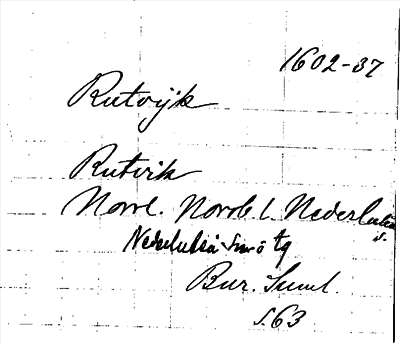 1602-37
Rutvijk
Rutvik
Norrl. Norrb. l. Nederluleå
s.
Nederluleå sn
Bur. Saml.
s. 63